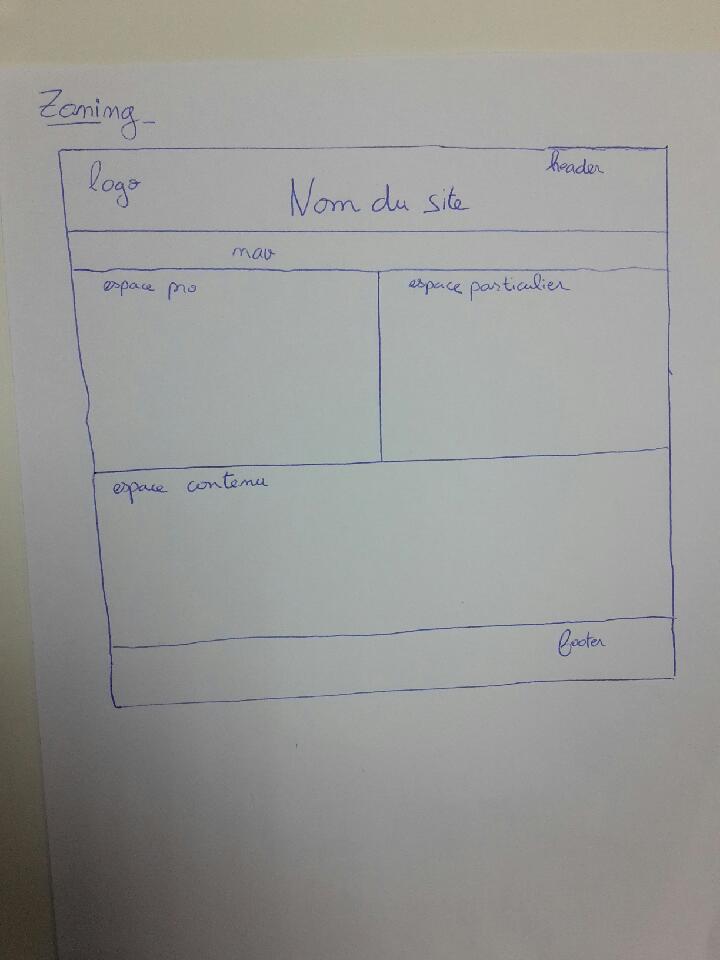 Zoning_
header
logo
Nom du site
nav
espace pro
espace particulier
espace contenu
footer